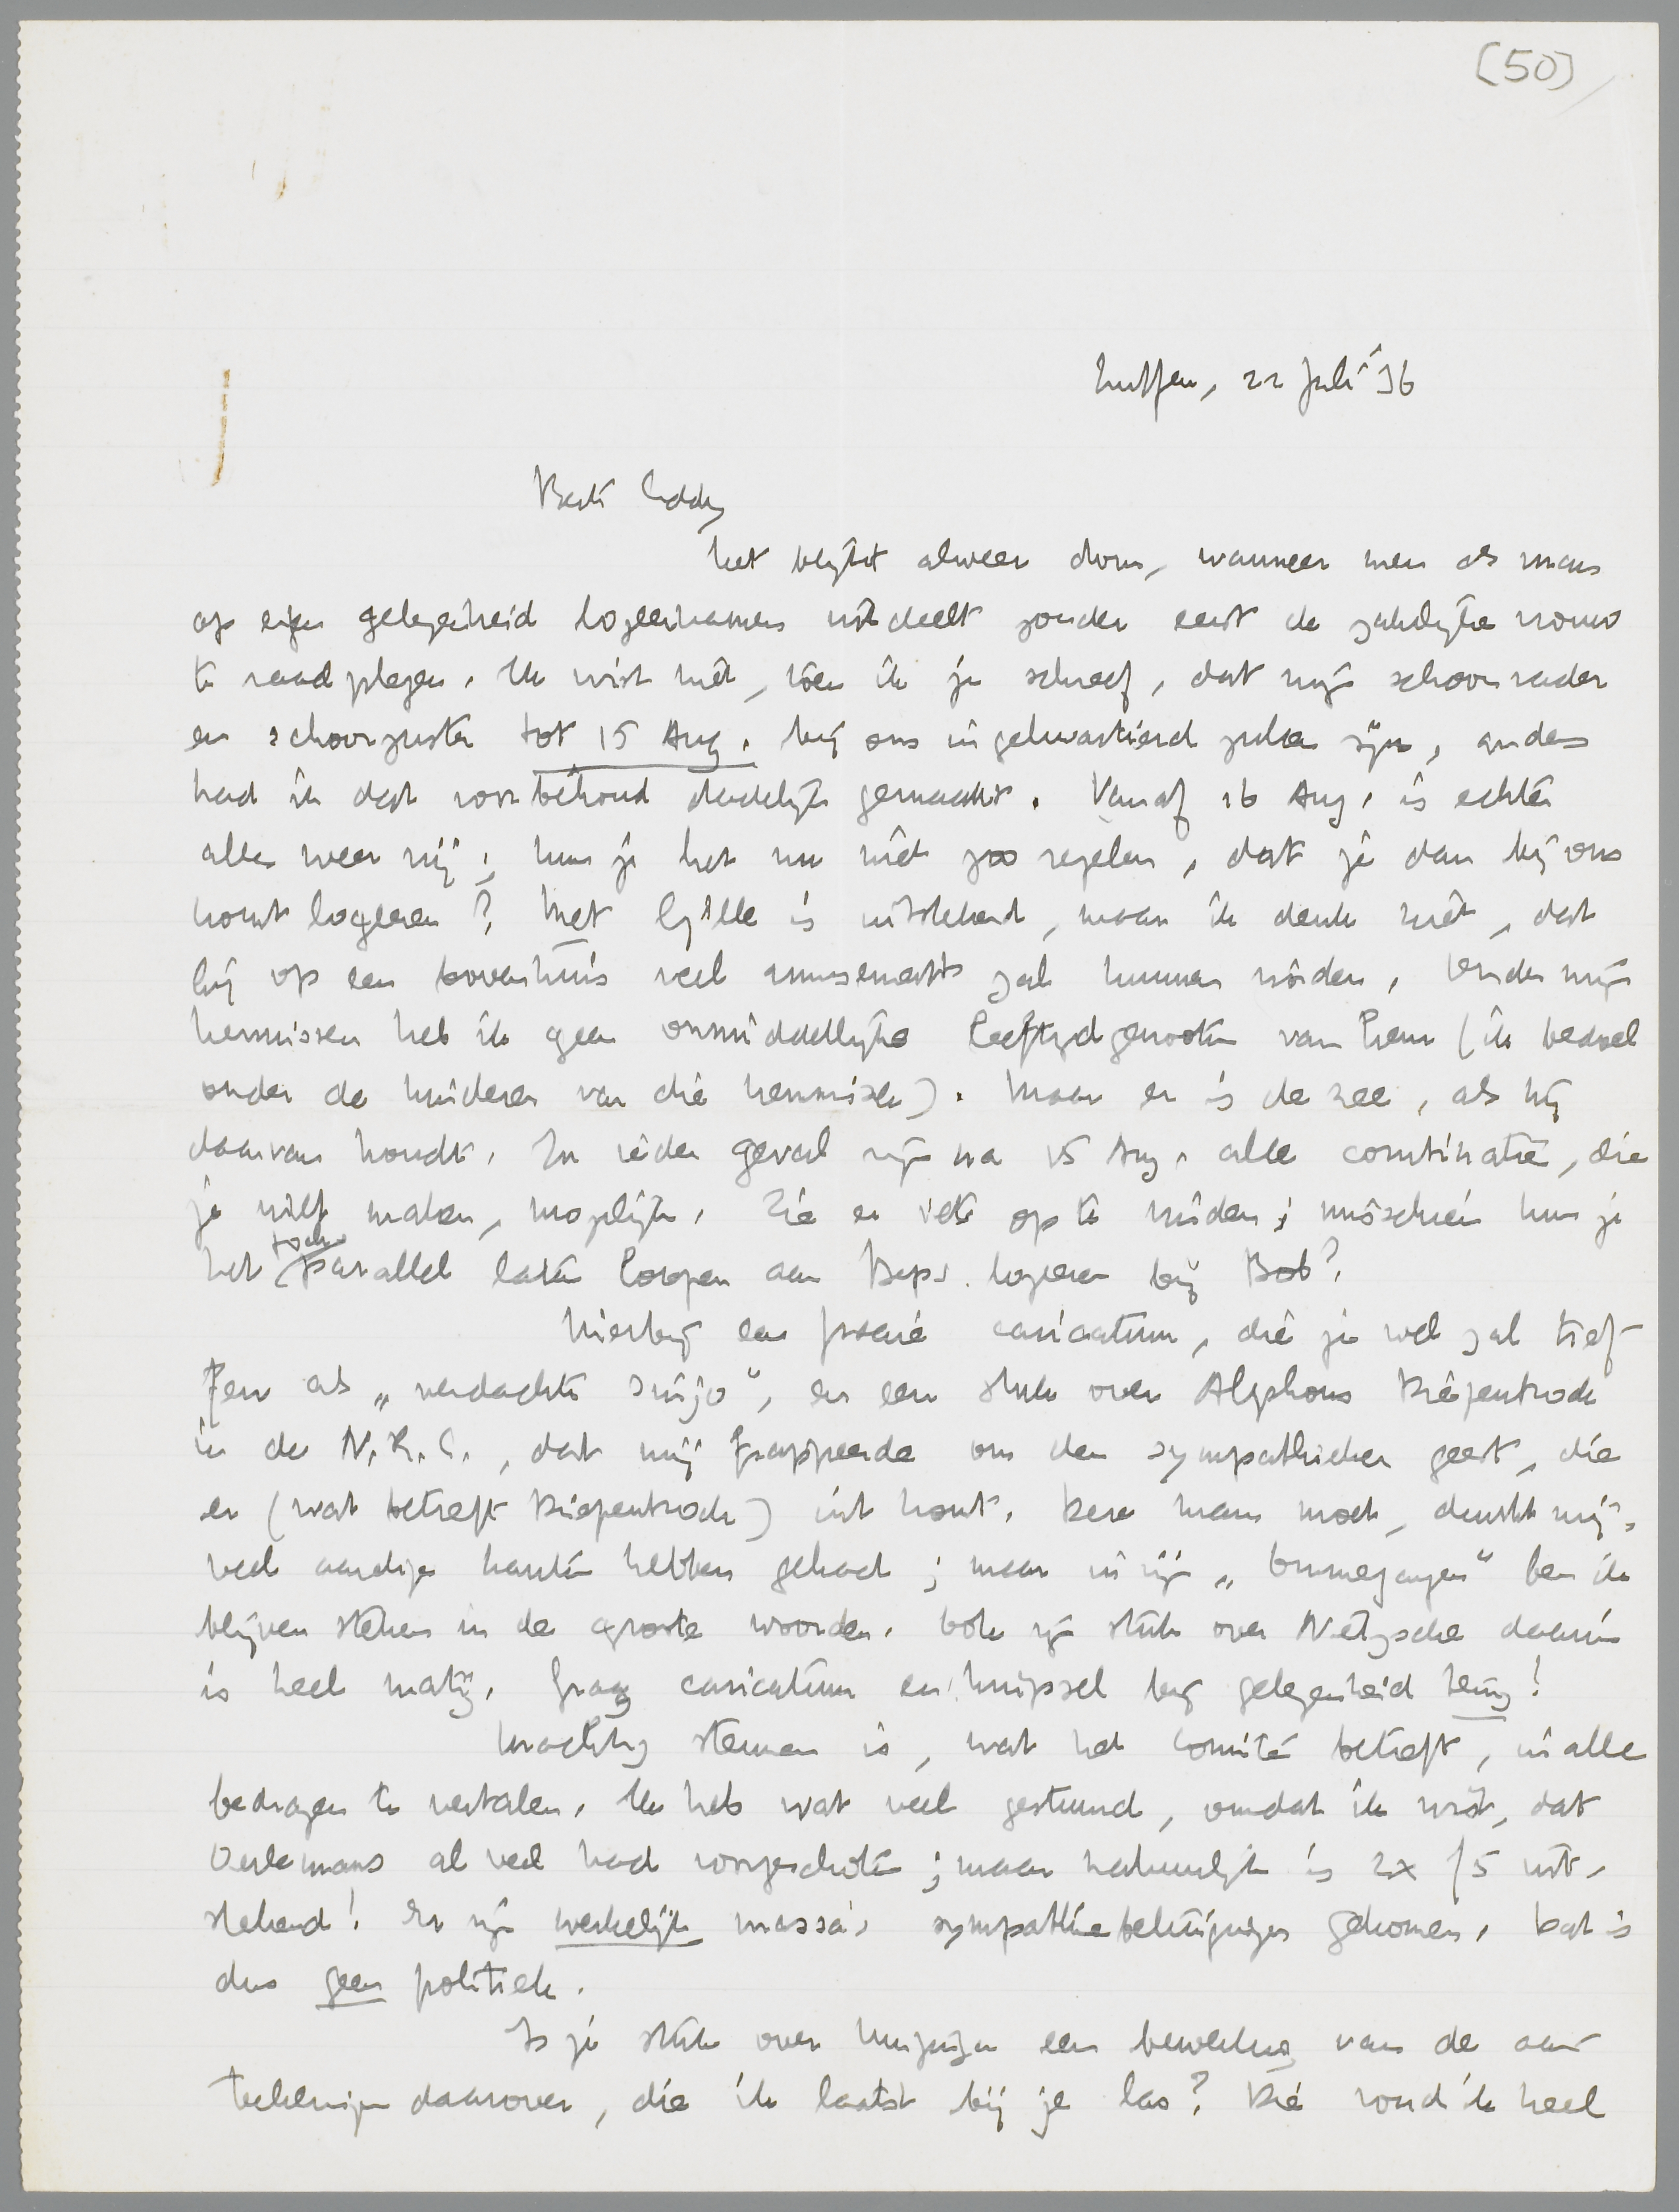 (50)
Zutfen, 22 Juli '36
Beste Eddy
Het blijkt alweer dom, wanneer men als man
op eigen gelegenheid logeerkamers uitdeelt zonder eerst de zakelijke vrouw
te raadplegen. Ik wist niet, toen ik je schreef, dat mijn schoonvader
en schoonzuster tot 15 Aug. bij ons ingekwartierd zullen zijn, anders
had ik dat voorbehoud dadelijk gemaakt. Vanaf 16 Aug. is echter
alles weer vrij; kun je het nu niet zoo regelen, dat je dan bij ons
komt logeeren? Met Gille is uitstekend, maar ik denk niet, dat
hij op een bovenhuis veel amusements zal kunnen vinden. Onder mijn
kennissen heb ik geen onmiddellijke leeftijdgenooten van hem (ik bedoel
onder de kinderen van die kennissen). Maar er is de zee, als hij
daarvan houdt. In ieder geval zijn na 15 Aug. alle combinaties, die
je wilt maken, mogelijk. Zie er iets op te vinden; misschien kun je
het toch parallel laten loopen aan Beps logeeren bij Bob?
Hierbij een fraaie caricatuur, die je wel zal tref-
fen als „verdachte sinjo”, en een stuk over Alphons Diepenbrock
in de N.R.C., dat mij frappeerde om den sympathieken geest, die
er (wat betreft Diepenbrock) uit komt. Deze man moet, dunkt mij,
veel aardige kanten hebben gehad; maar in zijn „Ommegangen” ben ik
blijven steken in de groote woorden. Ook zijn stuk over Nietzsche daarin
is heel matig. Graag caricatuur en knipsel bij gelegenheid terug!
Krachtig steunen is, wat het Comité betreft, in alle
bedragen te vertalen. Ik heb wat veel gestuurd, omdat ik wist, dat
Oerlemans al veel had voorgeschoten; maar natuurlijk is 2x f5 uit-
stekend! Er zijn werkelijk massa's sympathiebetuigingen gekomen. Dat is
dus geen politiek.
Is je stuk over Huizinga een bewerking van de aan-
teekeningen daarover, die ik laatst bij je las? Die vond ik heel